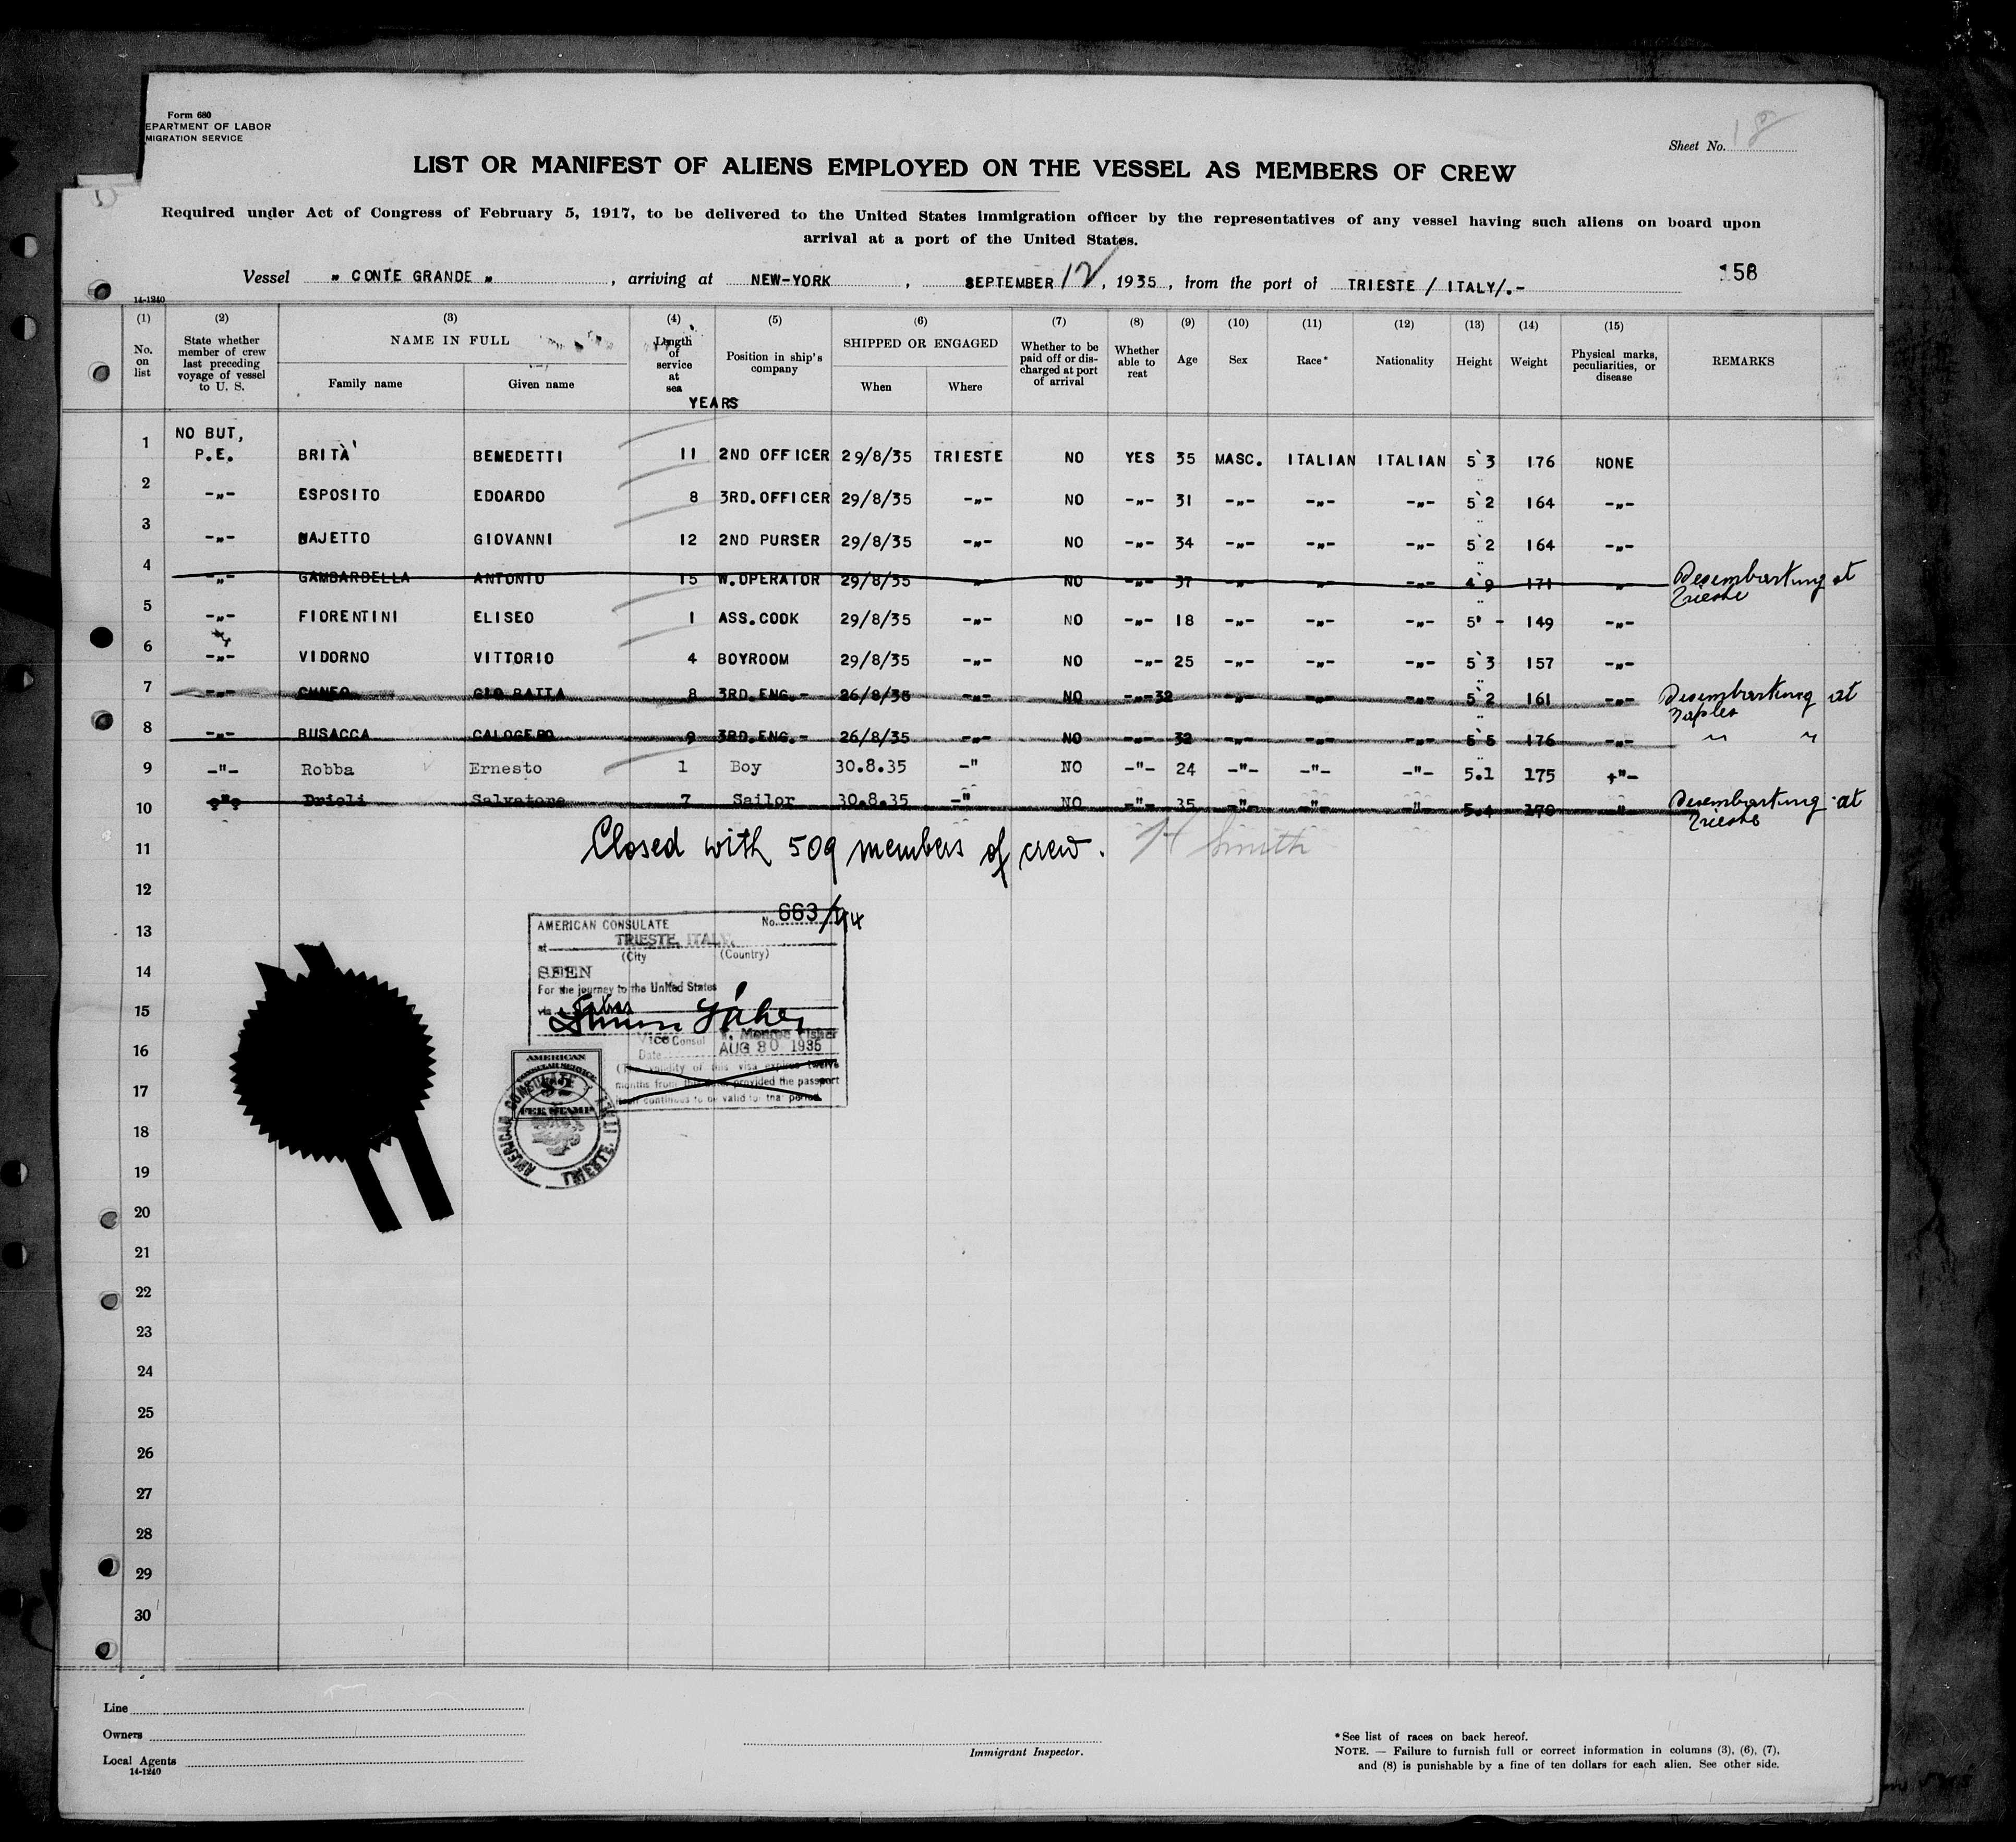 Form 680
EPARTMENT OF LABOR
MIGRATION SERVICE
Sheet No. 18
LIST OR MANIFEST OF ALIENS EMPLOYED ON THE VESSEL AS MEMBERS OF CREW
Required under Act of Congress of February 5, 1917, to be delivered to the United States immigration officer by the representatives of any vessel having such aliens on board upon
arrival at a port of the United States.
158
Vessel " CONTE GRANDE " , arriving at NEW-YORK , SEPTEMBER 12, 1935, from the port of TRIESTE / ITALY/.-
14-1240
(1) (2) (3) (4) (5) (6) (7) (8) (9) (10) (11) (12) (13) (14) (15)
No. on list State whether member of crew last preceding voyage of vessel to U. S. NAME IN FULL Family name Given name Length of service at sea YEARS Position in ship's company SHIPPED OR ENGAGED When Where Whether to be paid off or discharged at port of arrival Whether able to reat Age Sex Race* Nationality Height Weight Physical marks, peculiarities, or disease REMARKS
1 NO BUT, P.E. BRITÀ BEMEDETTI 11 2ND OFFICER 29/8/35 TRIESTE NO YES 35 MASC. ITALIAN ITALIAN 5 3 176 NONE
2 -"- ESPOSITO EDOARDO 8 3RD.OFFICER 29/8/35 -"- NO -"- 31 -"- -"- -"- 5 2 164 -"-
3 -"- MAJETTO GIOVANNI 12 2ND PURSER 29/8/35 -"- NO -"- 34 -"- -"- -"- 5 2 164 -"-
4 -"- GAMBARDELLA ANTONIO 15 W.OPERATOR 29/8/35 " NO -"- 37 -"- " -"- 4 9 171 " Desembarking at Trieste
5 -"- FIORENTINI ELISEO 1 ASS.COOK 29/8/35 -"- NO -"- 18 -"- -"- -"- 5' - 149 -"-
6 -"- VIDORNO VITTORIO 4 BOYROOM 29/8/35 -"- NO -"- 25 -"- -"- -"- 5 3 157 -"-
7 -"- CUNEO GIO BATTA 8 3RD.ENG.- 26/8/35 -"- NO -"- 32 -"- -"- -"- 5 2 161 -"- Desembarking at Naples
8 -"- BUSACCA CALOGERO 9 3RD.ENG.- 26/8/35 -"- NO -"- 32 -"- -"- -"- 5 5 176 -"- " "
9 -"- Robba Ernesto 1 Boy 30.8.35 -" NO -"- 24 -"- -"- -"- 5.1 175 +"-
10 -"- Drioli Salvatore 7 Sailor 30.8.35 -" NO -"- 35 -"- -"- -"- 5.4 170 " Desembarking at Trieste
11 Closed with 509 members of crew. H Smith
12
13
14
15
16
17
18
19
20
21
22
23
24
25
26
27
28
29
30
AMERICAN CONSULATE No. 663/
at TRIESTE, ITALY.
(City (Country)
SEEN
For the journey to the United States
via
Vice Consul Monroe Fisher
Date AUG 30 1935
(The validity of this visa expires twelve
months from this date, provided the passport
continues to be valid for that period.
AMERICAN
CONSULAR SERVICE
FEE STAMP
AMERICAN CONSULATE
TRIESTE, ITALY
Line
Owners
Local Agents
14-1240
Immigrant Inspector.
*See list of races on back hereof.
NOTE. — Failure to furnish full or correct information in columns (3), (6), (7),
and (8) is punishable by a fine of ten dollars for each alien. See other side.